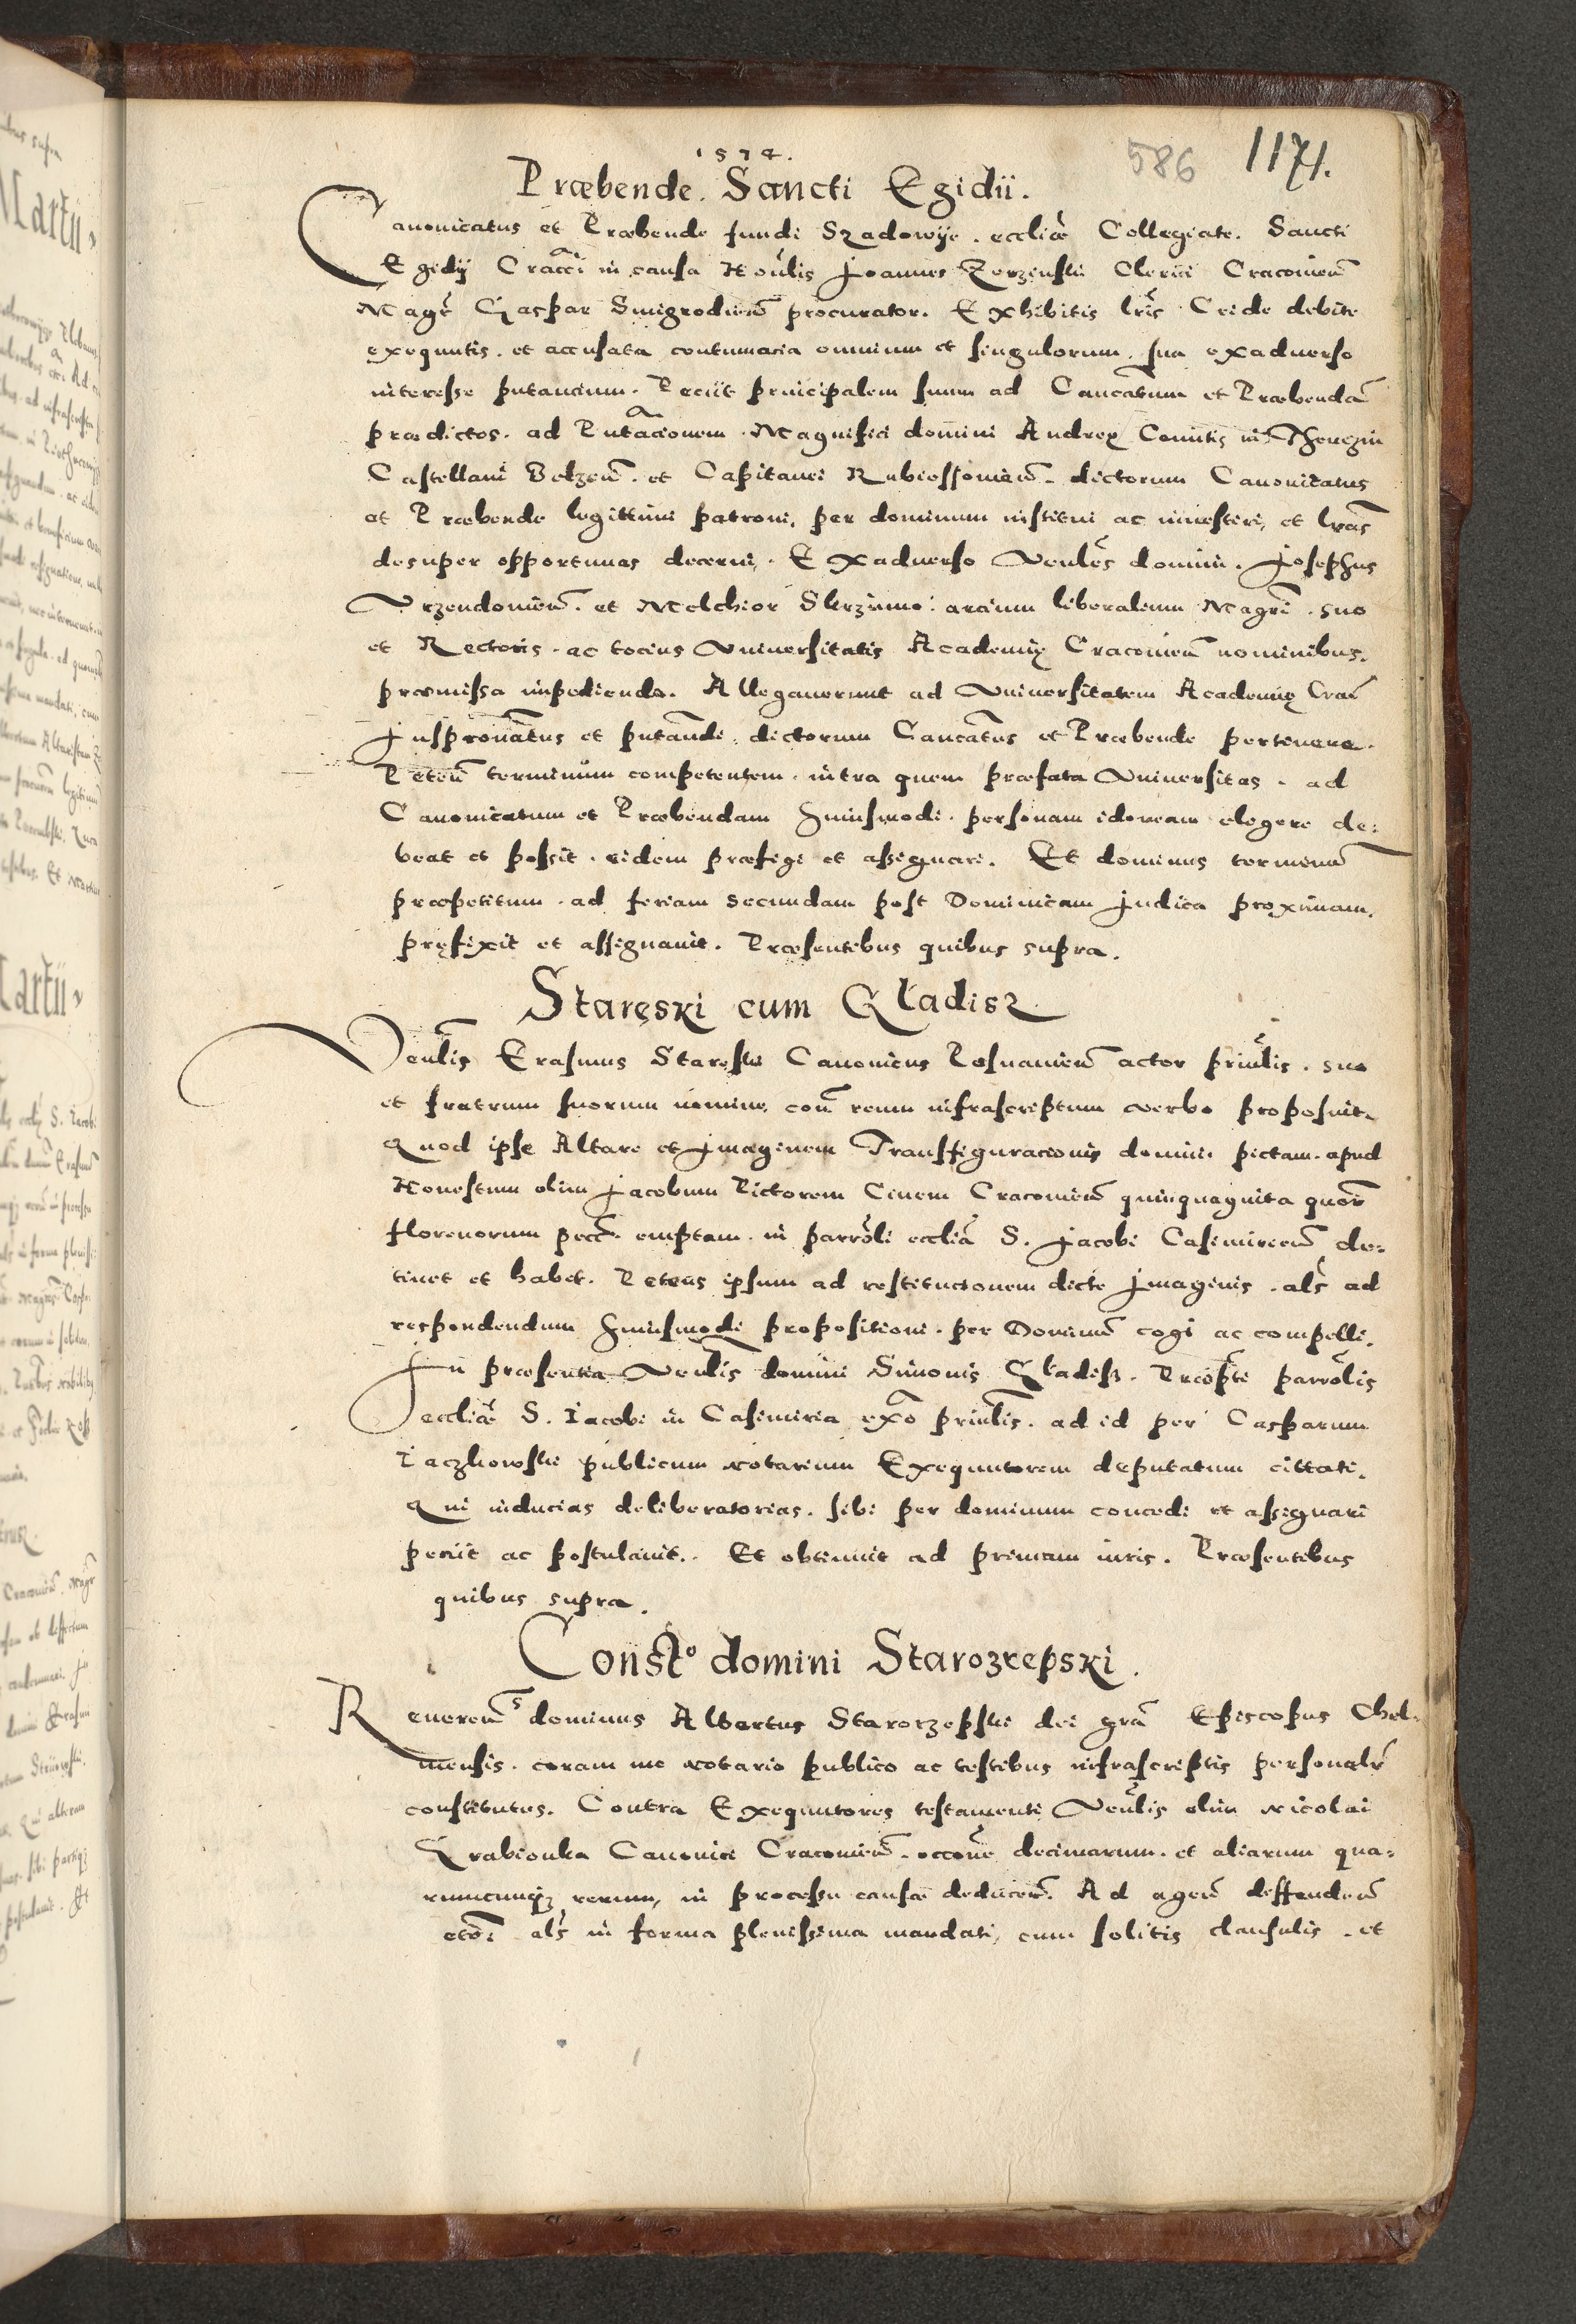 1574.
586 1171.
Præbende. Sancti Egidii.
Canonicatus et Præbende fundi Szadowije. ecclię Collegiate. Sancti
Egidij Cracci in causa Honlis Joannes Zerzenski Clerici Cracouien
Magr Gaspar Smigrodien procurator. Exhibitis lris Cride debite
exequutis. et accusata contumacia omnium et singulorum. sua exaduerso
interesse putancium. Peciit principalem suum ad Cancatum et Præbendã
prædictos. ad Pntacionem. Magnifici domini Andreę Comitis in Thenczin
Castellani Belzen. et Capitanei Rubiessouien. dictorum Canonicatus
et Præbende legittimi patroni, per dominum institui ac inuestiri, et lras
desuper opportunas decerni. Exaduerso Venles domini. Josephus
Vrzendouien. et Melchior Skrzinno arcium liberalium Magri. suo
et Rectoris. ac tocius Vniuersitatis Academię Cracouien nominibus.
præmissa impediendo. Allegauerunt ad Vniuersitatem Academię Crac
Juspronatus et pntandi. dictorum Cancatus et Præbende pertinere.
Peten terminum competentem. intra quem præfata Vniuersitas. ad
Canonicatum et Præbendam huiusmodi. personam idoneam elegere de:
beat et possit. eidem præfigi et assignari. Et dominus terminũ
præpetitum. ad feriam secundam post Dominicam Judica proximam.
pręfixit et assignauit. Præsentibus quibus supra.
Staręski cum Gładisz
Venlis Erasmus Stareski Canonicus Posnanien actor prinlis. suo
et fratrum suorum nomine, con reum infrascriptum verbo proposuit.
Quod ipse Altare et Imaginem Transfiguracionis domini pictam. apud
Honestum olim Jacobum Pictorem Ciuem Cracouien quinquaginta quor
florenorum pecc. emptam. in parroli ecclia S. Jacobi Casimirien de:
tinet et habet. Petens ipsum ad restitucionem dicte Imaginis. als ad
respondendum huiusmodi propositioni. per Dominũ cogi ac compelli.
In præsentia Venlis domini Simonis Gładisz. Præpti parrolis
ecclię S. Iacobi in Casimiria exo prinlis. ad id per Casparum
Paczkowski publicum notarium Exequutorem deputatum cittati.
Qui inducias deliberatorias. sibi per dominum concedi et assignari
peciit ac postulauit. Et obtinuit ad primam iuris. Præsentibus
quibus supra.
Constto domini Starozrepski.
Reuerens dominus Albertus Starorzepski dei gra Episcopus Chel:
mensis. coram me notario publico ac testibus infrascriptis personalr
constitutus. Contra Exequutores testamenti Venlis olim Nicolai
Grabionka Canonici Cracouien. occone decimarum. et aliarum qua:
rumcunqz rerum, in processu causæ deducen. Ad agen deffenden
etc. als in forma plenissima mandati, cum solitis clausulis. et